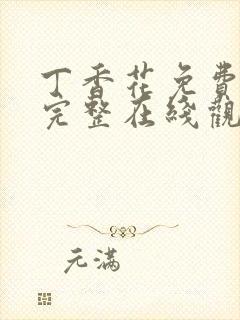 丁香花免費
完整在綫觀
元滿